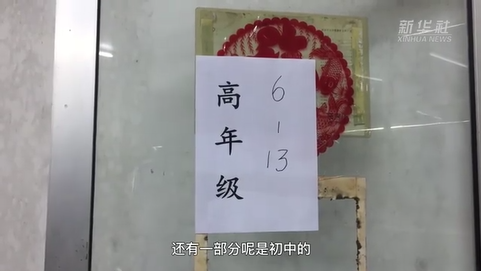 新华社
XINHUA NEWS
高年级
6
1
13
还有一部分呢是初中的